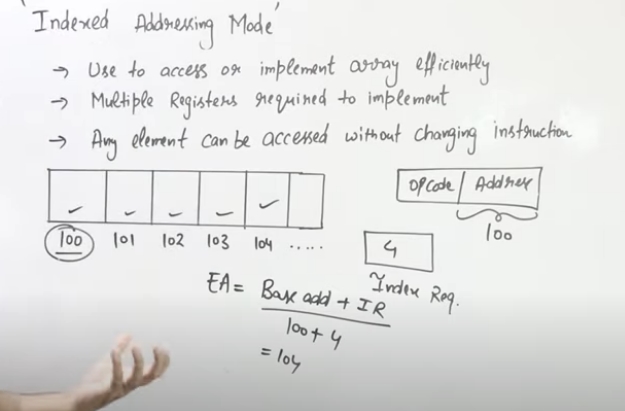 'Indexed Addressing Mode'
→ Use to access or implement array efficiently
→ Multiple Registers required to implement
→ Any element can be accessed without changing instruction
OPCode Address
100
100 101 102 103 104 .....
4
Index Reg.
EA = Base add + IR
100 + 4
= 104